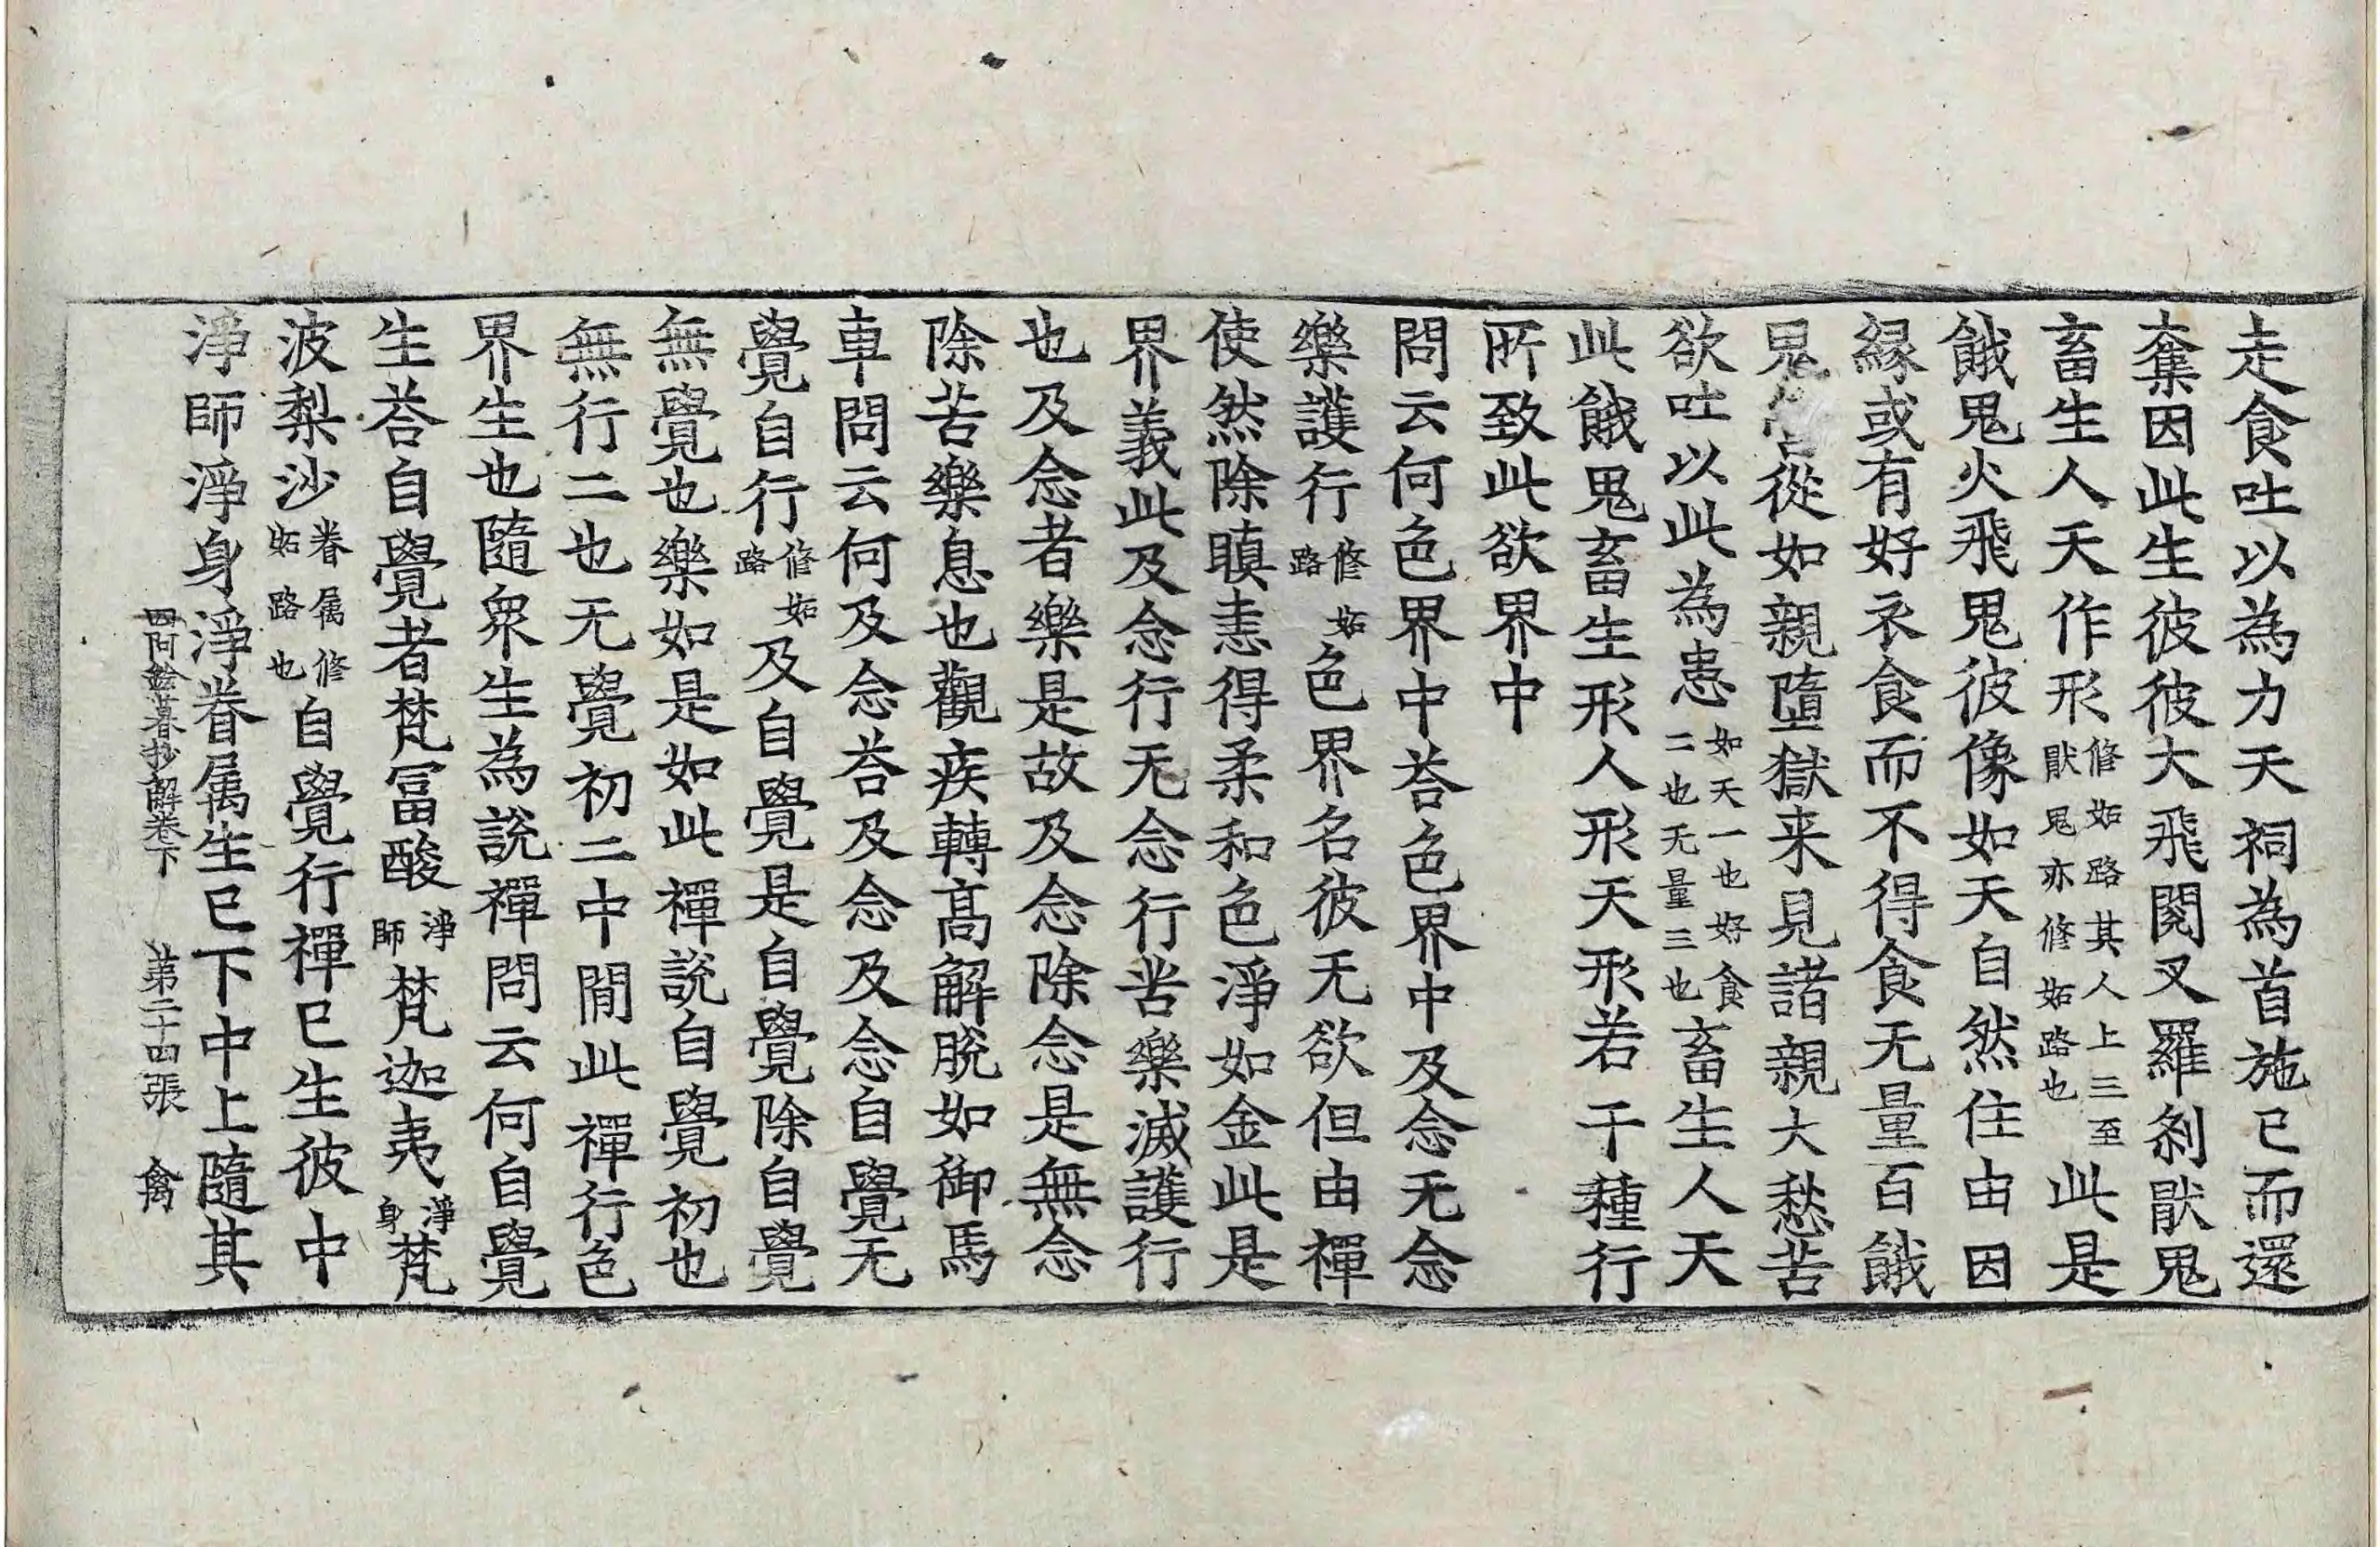 走食吐以為力天祠為首施已而還
奪因此生彼彼大飛閱叉羅剎猒鬼
畜生人天作形修妬路其人上三至猒鬼亦修妬路也此是
餓鬼火飛鬼彼像如天自然住由因
緣或有好衣食而不得食无量百餓
鬼從如親墮獄来見諸親大愁苦
欲吐以此為患如天一也好食二也无量三也畜生人天
此餓鬼畜生形人形天形若干種行
所致此欲界中
問云何色界中荅色界中及念无念
樂護行修妬路色界名彼无欲但由禪
使然除瞋恚得柔和色淨如金此是
界義此及念行无念行苦樂滅護行
也及念者樂是故及念除念是無念
除苦樂息也觀疾轉高解脫如御馬
車問云何及念荅及念及念自覺无
覺自行修妬路及自覺是自覺除自覺
無覺也樂如是如此禪說自覺初也
無行二也无覺初二中間此禪行色
界生也隨眾生為說禪問云何自覺
生荅自覺者梵冨酸淨師梵迦夷淨身梵
波梨沙眷属修妬路也自覺行禪已生彼中
淨師淨身淨眷属生已下中上隨其
四阿鋡暮抄解卷下 第二十四張 禽